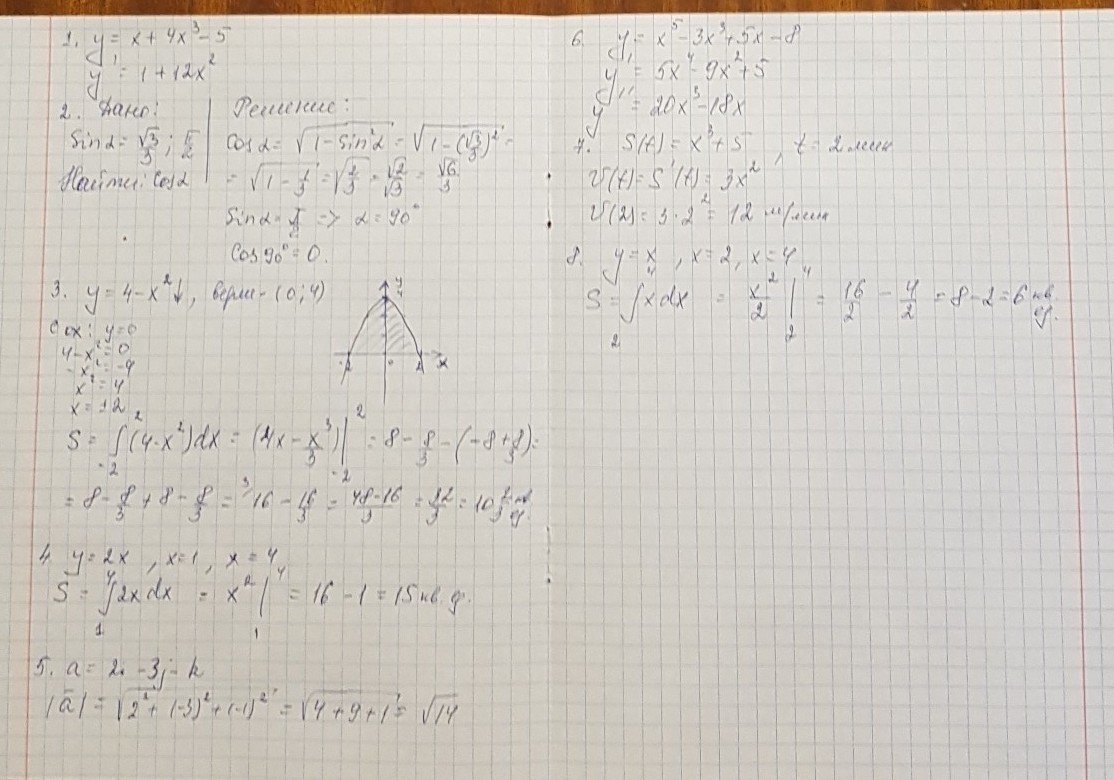 1. y = x + 4x³ - 5
y' = 1 + 12x²
2. Дано: | Решение:
Sinα = √3/3 ; π/2 | Cosα = √(1 - sin²α) = √(1 - (√3/3)²) =
Найти: Cosα | = √(1 - 1/3) = √(2/3) = √2/√3 = √6/3
Sinα = π/2 => α = 90°
Cos 90° = 0.
3. y = 4 - x² ↓, верш - (0; 4)
С ох: y = 0
4 - x² = 0
- x² = -4
x² = 4
x = ±2
y
4
-2 0 2 x
S = ∫₋₂² (4 - x²) dx = (4x - x³/3) |₋₂² = 8 - 8/3 - (-8 + 8/3) =
= 8 - 8/3 + 8 - 8/3 = ³⁄16 - 16/3 = 48-16/3 = 32/3 = 10 2/3 кв. ед.
4. y = 2x , x = 1 , x = 4
S = ∫₁⁴ 2x dx = x² |₁⁴ = 16 - 1 = 15 кв. ед.
5. a = 2i - 3j - k
|a̅| = √(2² + (-3)² + (-1)²) = √(4 + 9 + 1) = √14
6. y = x⁵ - 3x³ + 5x - 8
y' = 5x⁴ - 9x² + 5
y'' = 20x³ - 18x
7. S(t) = x³ + 5 , t = 2 мин
V(t) = S'(t) = 3x²
V(2) = 3 · 2² = 12 м/мин
8. y = x , x = 2, x = 4
S = ∫₂⁴ x dx = x²/2 |₂⁴ = 16/2 - 4/2 = 8 - 2 = 6 кв. ед.